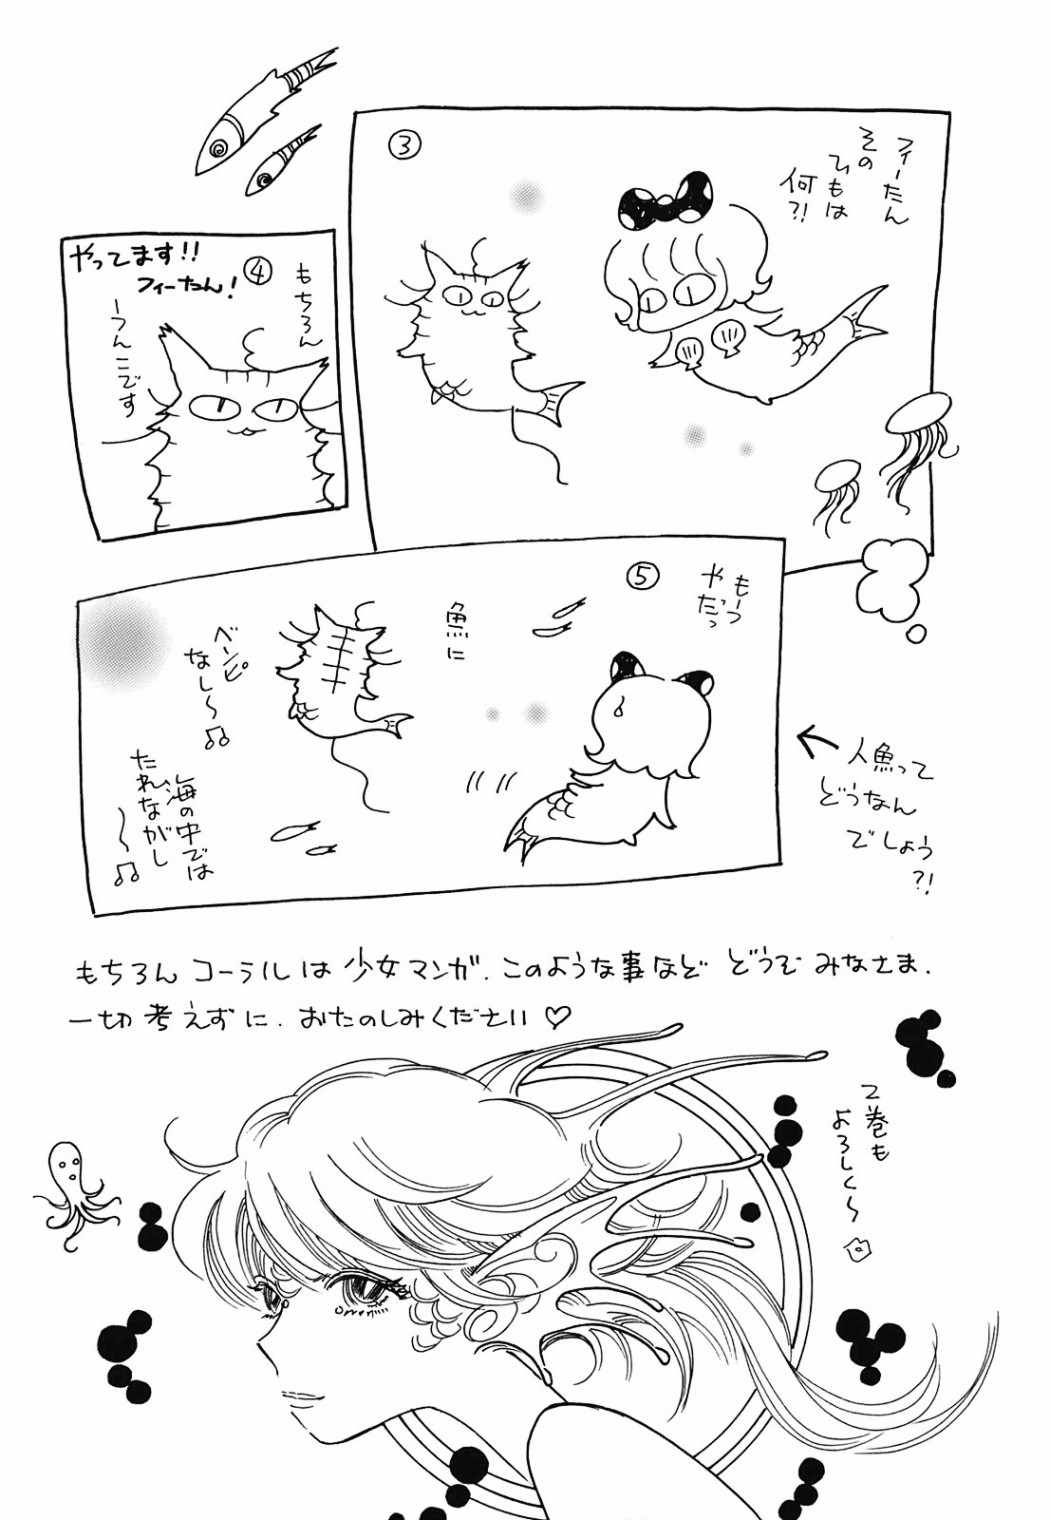 ③
フィーたん
その
ひもは
何?!
④
やってます!!
フィーたん!
もちろん
ーうんこです
⑤
もーっ
やだっ
魚に
ベンピ
なし〜♫
海の中では
たれながし
〜♫
人魚って
どうなん
でしょう
?!
もちろんコーラルは少女マンガ.このような事など どうぞ みなさま.
一切考えずに.おたのしみください♡
2巻も
よろしく〜